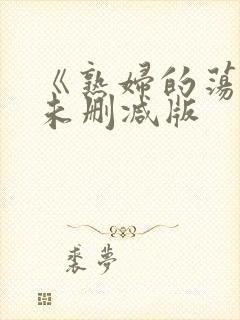 《熟婦的蕩
未刪减版
裘夢